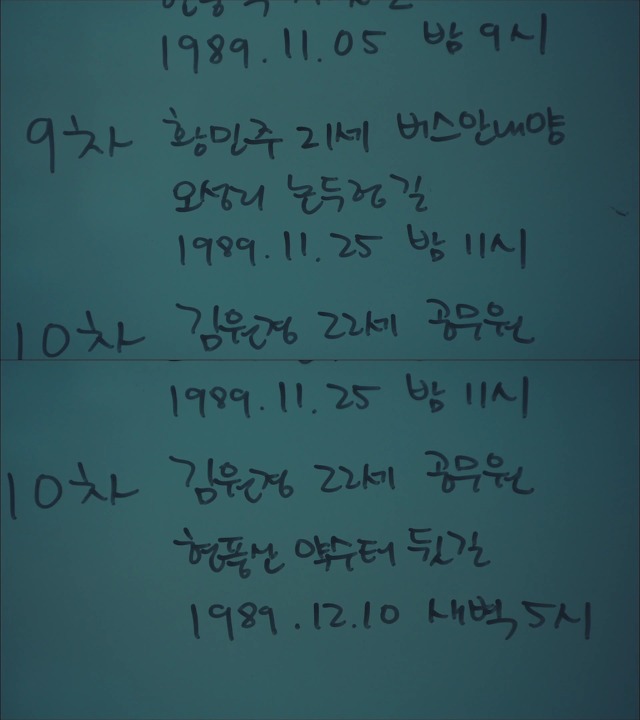 1989.11.05 밤 9시
9차 황민주 21세 버스안내양
오성리 논두렁길
1989.11.25 밤 11시
10차 김원정 22세 공무원
1989.11.25 밤 11시
10차 김원정 22세 공무원
현풍산 약수터 뒷길
1989.12.10 새벽 5시